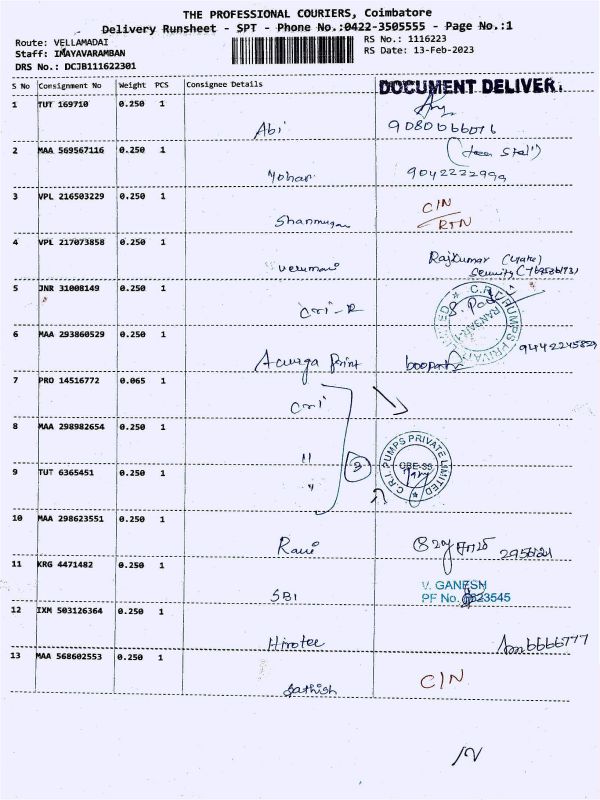 THE PROFESSIONAL COURIERS, Coimbatore
Delivery Runsheet - SPT - Phone No.:0422-3505555 - Page No.:1
Route: VELLAMADAI
RS No.: 1116223
Staff: IMAYAVARAMBAN
RS Date: 13-Feb-2023
DRS No.: DCJB111622301
S No Consignment No Weight PCS Consignee Details
DOCUMENT DELIVER.
1 TUT 169710 0.250 1
Abi 9080066076
2 MAA 569567116 0.250 1
Mohan 9042222999
3 VPL 216503229 0.250 1 C/N
Shanmugan RTN
4 VPL 217073858 0.250 1 Rajkumar (Gate)
Security
5 JNR 31008149 0.250 1
cri-R
C.R.I. PUMPS PRIVATE LIMITED
6 MAA 293860529 0.250 1
Print boopathi 9442245829
7 PRO 14516772 0.065 1
cri
8 MAA 298982654 0.250 1
"
C.R.I. PUMPS PRIVATE LIMITED
CBE-35
9 TUT 6365451 0.250 1
"
10 MAA 298623551 0.250 1
Ravi
11 KRG 4471482 0.250 1
V. GANESH
SBI PF No.
12 IXM 503126364 0.250 1
13 MAA 568602553 0.250 1 C/N
Sathish